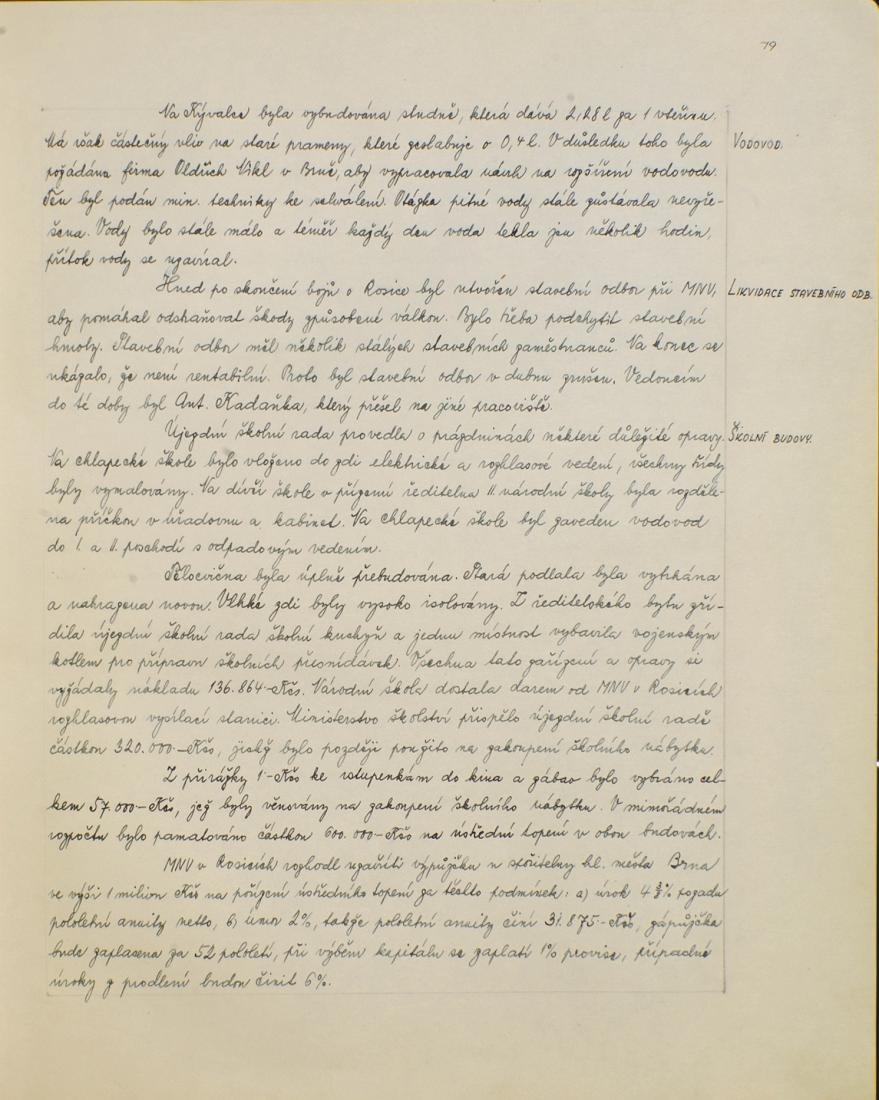 79
Na Kývalce byla vybudována studně, která dává 2,28 l za 1 vteřinu.
Má však částečný vliv na staré prameny, které zeslabuje o 0,4 l. V důsledku toho byla
VODOVOD.
požádána firma Oldřich Nikl v Brně, aby vypracovala návrh na rozšíření vodovodu.
Ten byl podán min. techniky ke schválení. Otázka pitné vody stále zůstávala nevyře-
šena. Vody bylo stále málo a téměř každý den voda tekla jen několik hodin,
přítok vody se uzavíral.
Hned po skončení bojů o Rosice byl utvořen stavební odbor při MNV,
LIKVIDACE STAVEBNÍHO ODB.
aby pomáhal odstraňovat škody způsobené válkou. Bylo třeba podchytit stavební
hmoty. Stavební odbor měl několik stálých stavebních zaměstnanců. Na konec se
ukázalo, že není rentabilní. Proto byl stavební odbor v dubnu zrušen. Vedoucím
do té doby byl Ant. Kadaňka, který přešel na jiné pracoviště.
Újezdní školní rada provedla o prázdninách některé důležité opravy.
ŠKOLNÍ BUDOVY.
Na chlapecké škole bylo vloženo do zdi elektrické a rozhlasové vedení, všechny třídy
byly vymalovány. Na dívčí škole v přízemí ředitelna II. národní školy byla rozděle-
na příčkou v úřadovnu a kabinet. Na chlapecké škole byl zaveden vodovod
do I. a II. poschodí s odpadovým vedením.
Tělocvična byla úplně přebudována. Stará podlaha byla vytrhána
a nahrazena novou. Vlhké zdi byly vysoko isolovány. Z ředitelského bytu zří-
dila újezdní školní rada školní kuchyň a jednu místnost vybavila vojenským
kotlem pro přípravu školních přesnídávek. Všechna tato zařízení a opravy si
vyžádaly nákladu 136.864.-Kčs. Národní škola dostala darem od MNV v Rosicích
rozhlasovou vysílací stanici. Ministerstvo školství přispělo újezdní školní radě
částkou 320.000.-Kčs, jichž bylo později použito na zakoupení školního nábytku.
Z přirážky 1.-Kčs ke vstupenkám do kina a zábav bylo vybráno cel-
kem 57.000.-Kčs, jež byly věnovány na zakoupení školního nábytku. V mimořádném
rozpočtu bylo pamatováno částkou 600.000.-Kčs na ústřední topení v obou budovách.
MNV v Rosicích rozhodl uzavříti výpůjčku u spořitelny hl. města Brna
ve výši 1 milion Kčs na pořízení ústředního topení za těchto podmínek: a) úrok 4 ⅜% pozadu
pololetní anuity netto, b) úmor 2%, takže pololetní anuity činí 31.875.-Kčs, zápůjčka
bude zaplacena za 52 pololetí, při výběru kapitálu se zaplatí 1% provise, případné
úroky z prodlení budou činit 6%.